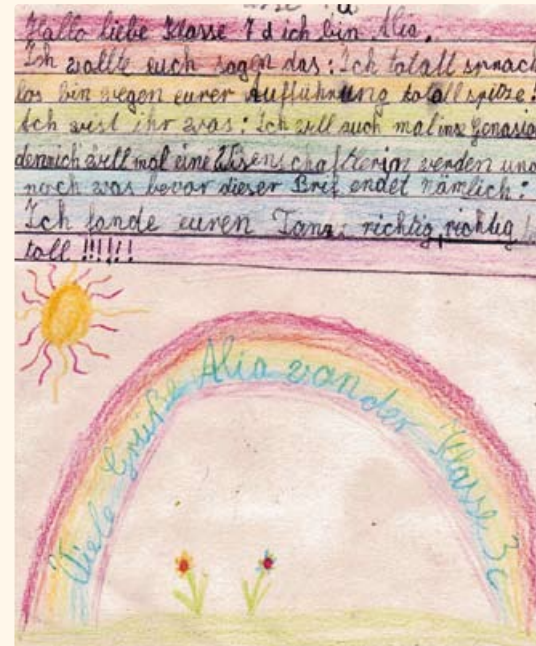 Hallo liebe Klasse 7 d ich bin Alia.
Ich wollte euch sagen das: Ich totall sprach
los bin wegen eurer Aufführung totall spitze!
Ach west ihr was: Ich will auch mal ins Genasion
dennich will mal eine Wisenschaftlerin werden und
noch was bevor dieser Brif endet nämlich:
Ich fande euren Tanz richtig, richtig
toll !!!!!!
Viele Grüße Alia von der Klasse 3c